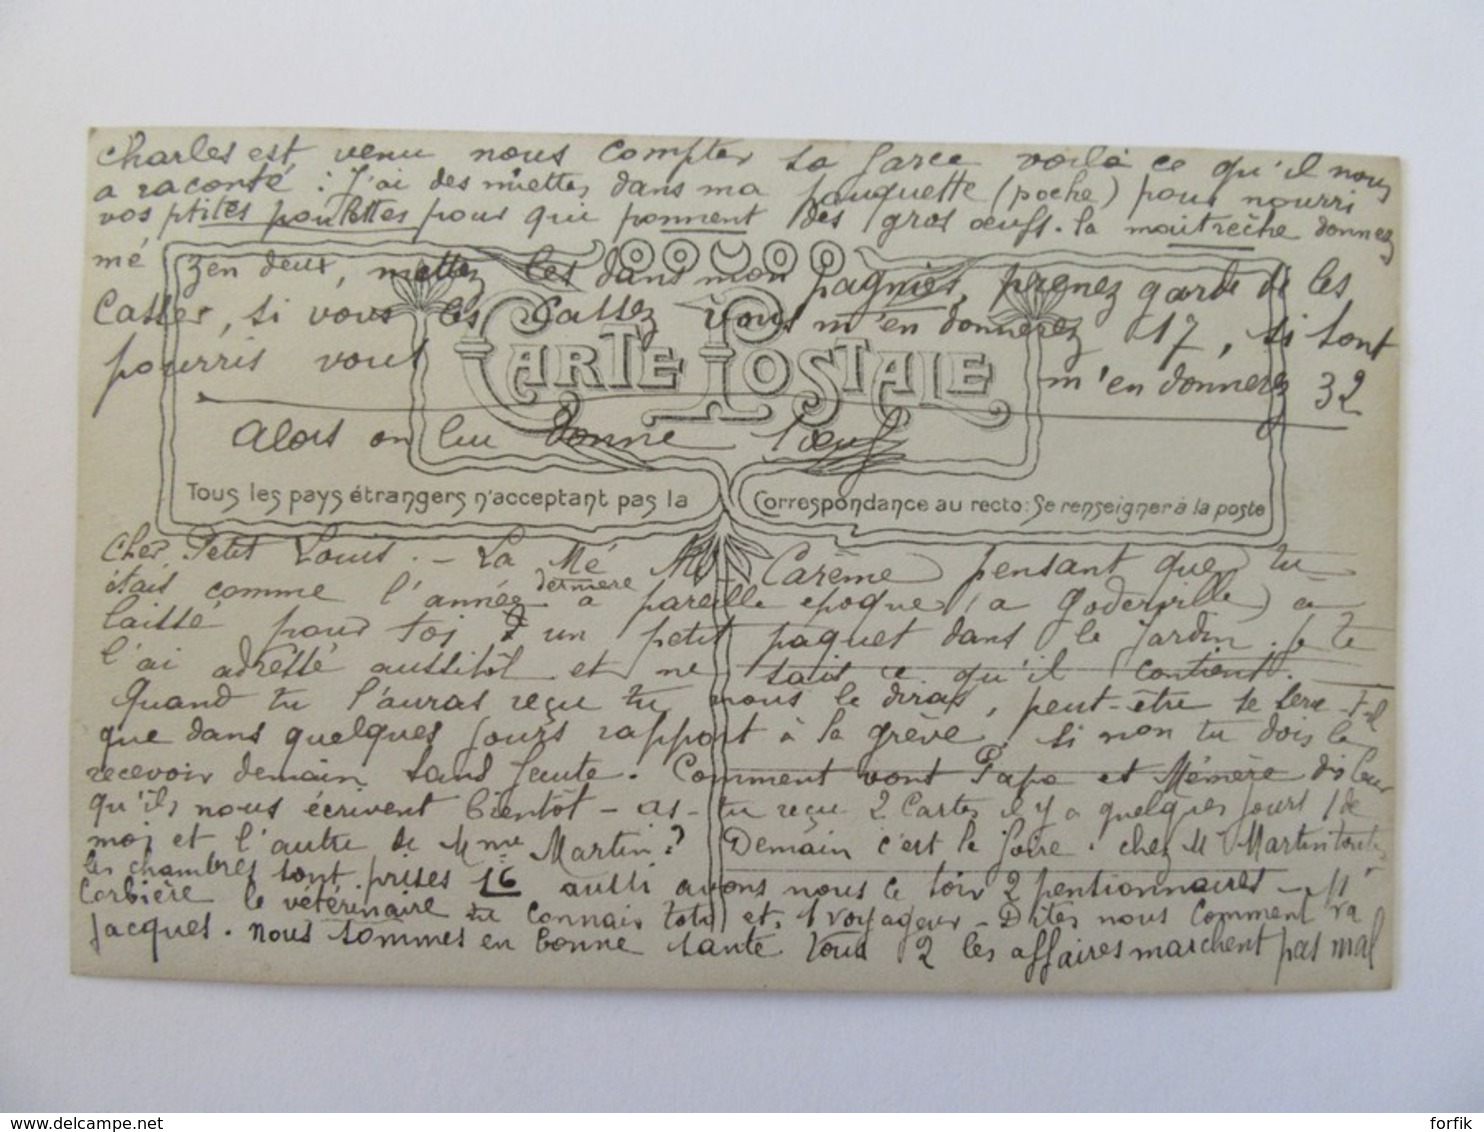 Charles est venu nous compter sa farce voilà ce qu'il nous
a raconté : J'ai des miettes dans ma pouquette (poche) pour nourri
vos ptites poulettes pour qui ponnent des gros œufs. la maitrèche donnez
mé zen deux, mettez les dans mon pagniès, prenez garde di les
casser, si vous les cassez vous m'en donnerez 17, si sont
pourris vous m'en donnerez 32
CARTE POSTALE
Alors on lui donne 1 œuf
Tous les pays étrangers n'acceptant pas la Correspondance au recto: Se renseigner à la poste
Cher Petit Louis. - La Mé Mi-Carême pensant que tu
étais comme l'année dernière à pareille époque (à Goderville) a
laissé pour toi un petit paquet dans le jardin. Je te
l'ai adressé aussitôt et ne sais ce qu'il contient.
Quand tu l'auras reçu tu nous le diras, peut-être te sera-t-il
que dans quelques jours rapport à la grève, si non tu dois le
recevoir demain sans faute. Comment vont Papa et Mémère dis leur
qu'ils nous écrivent bientôt - as-tu reçu 2 cartes il y a quelques jours 1 de
moi et l'autre de Mme Martin? Demain c'est la foire. chez M Martin toutes
les chambres sont prises 16 aussi avons nous ce soir 2 pensionnaires - Mr
Corbière le vétérinaire tu connais toto et 1 voyageur - Dites nous comment va
Jacques. nous sommes en bonne santé tous 2 les affaires marchent pas mal
delcampe.net
forfik